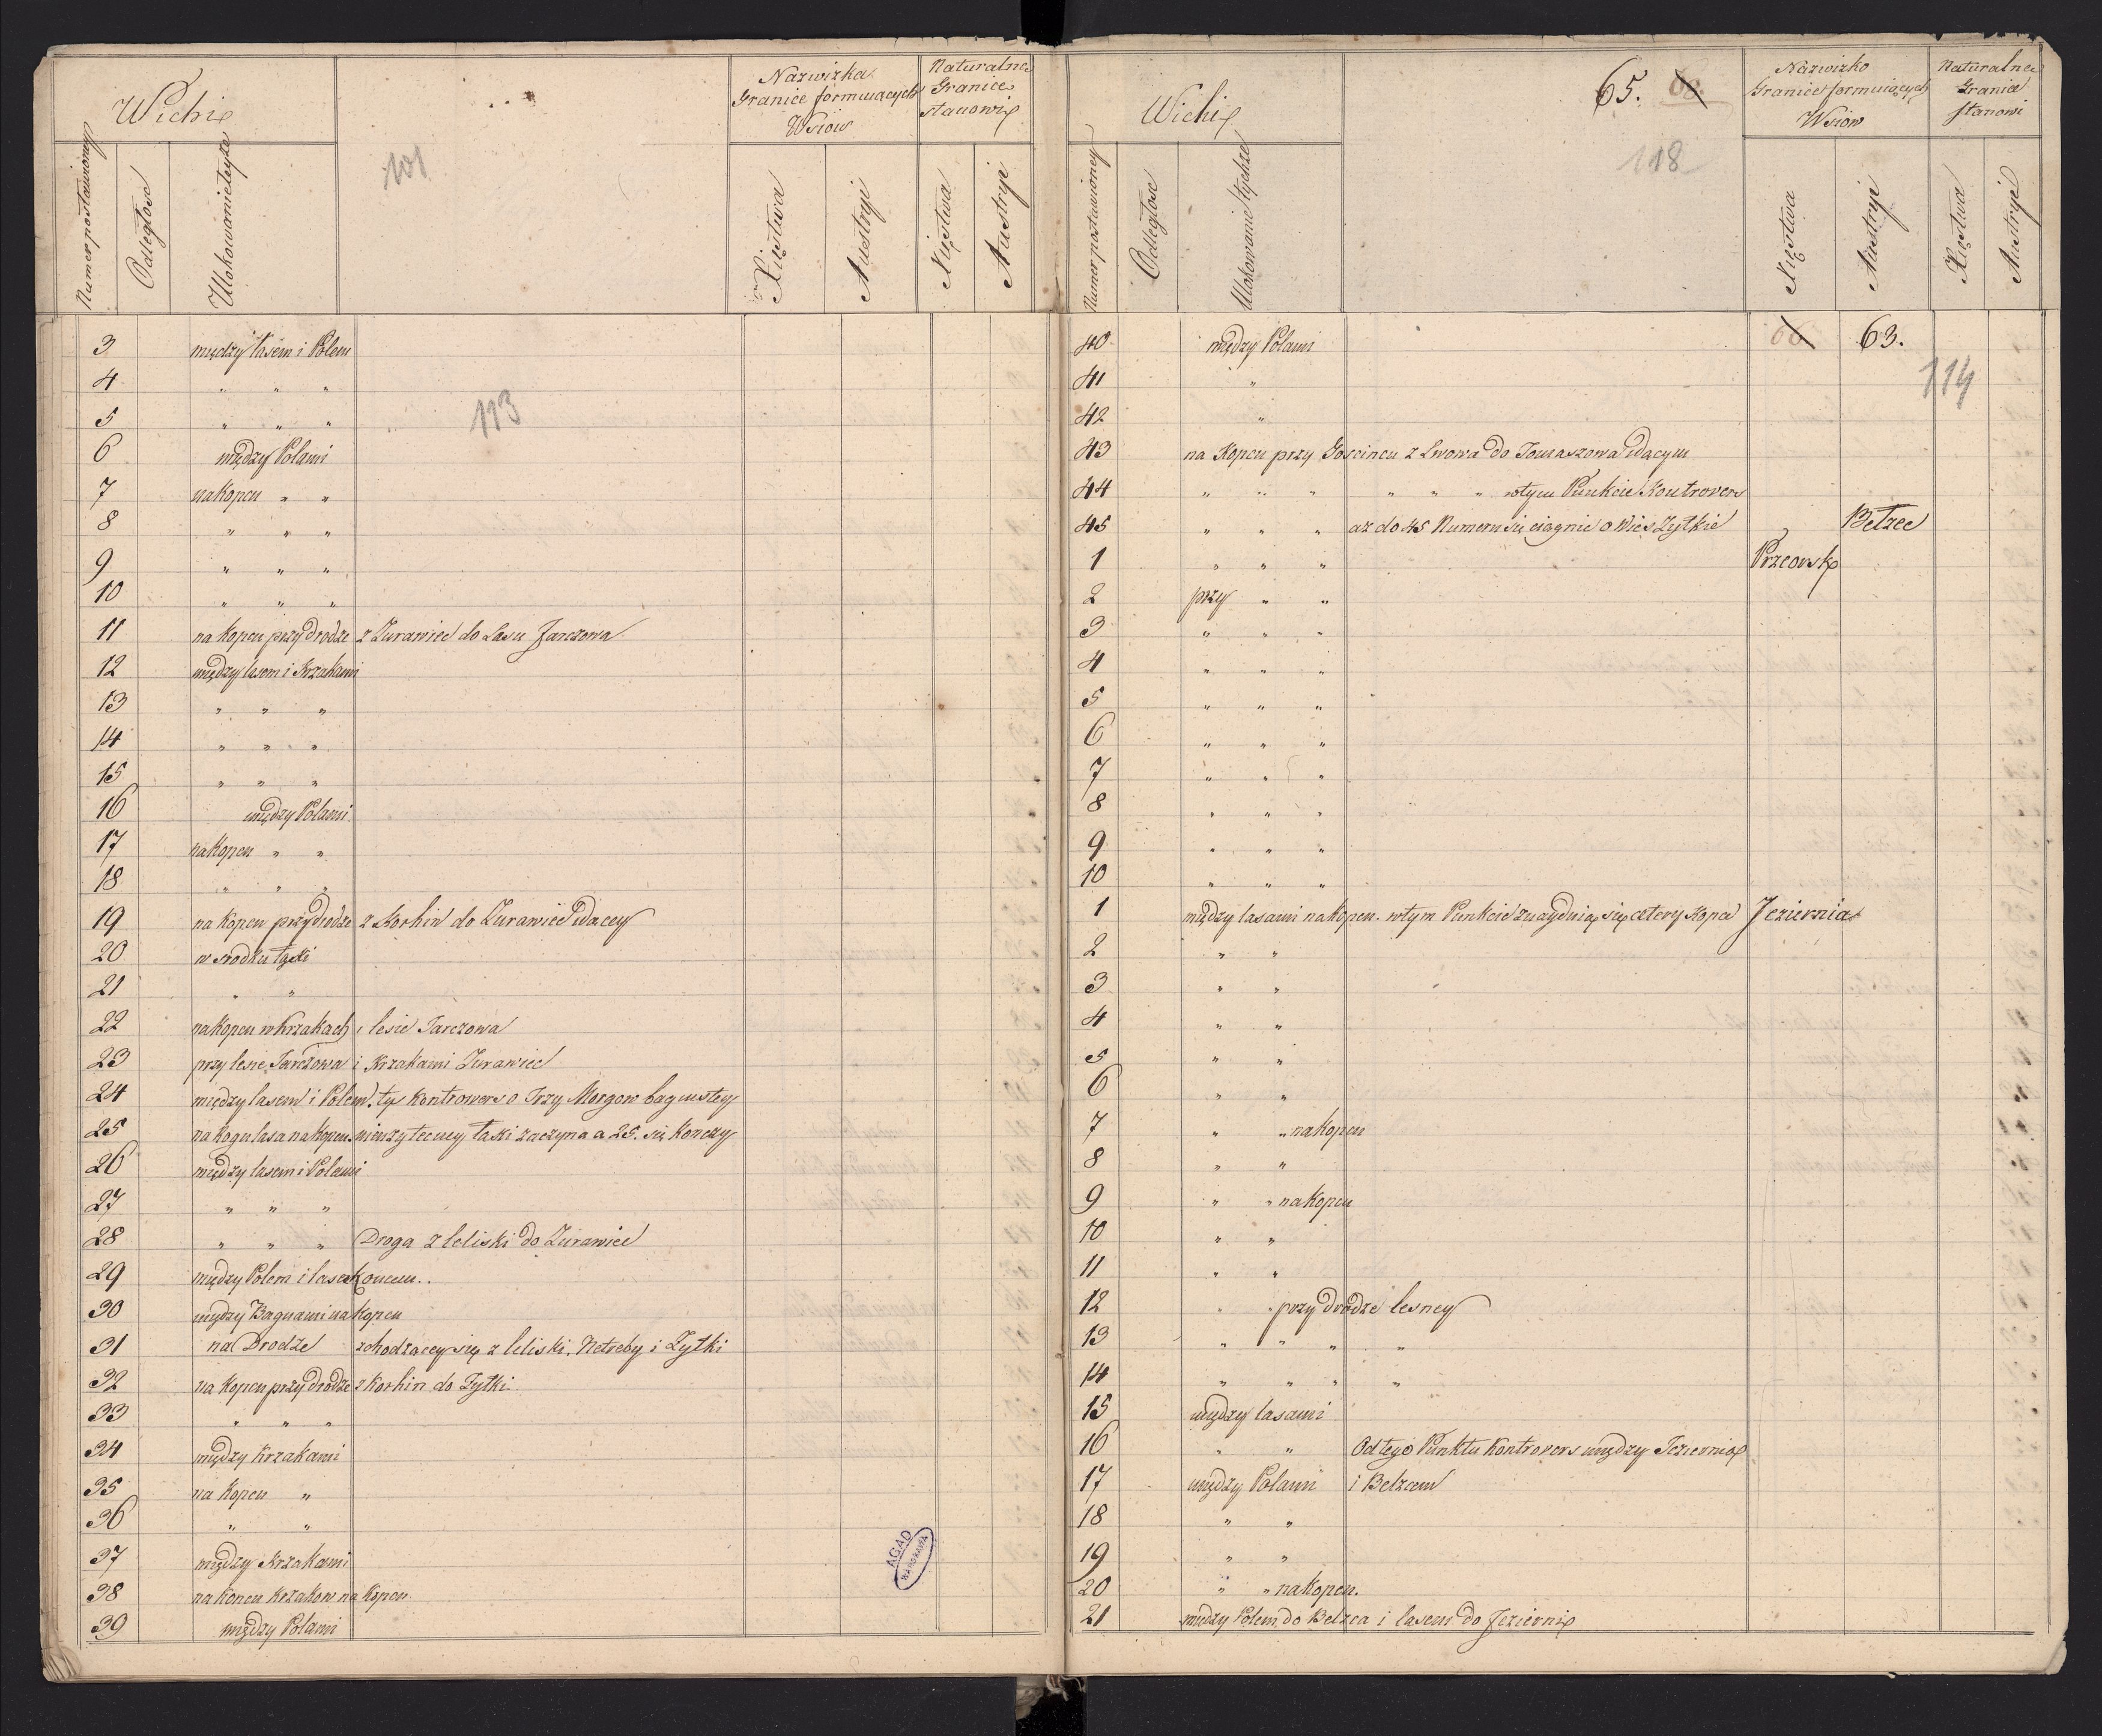 Wichi
Numer postawioney
Odległosc
Ulokowanie tyze
101
Nazwizka
Granice formuiących
Wsiow
Xięstwa
Austryi
Naturalne
Granice
stanowi
Xięstwa
Austryi
3 między lasem i Polem
4 " " "
5 " " "
113
6 między Polami
7 na Kopcu " "
8 " " "
9 " " "
10 " " "
11 na Kopcu przy drodze z Zurawiec do Lasu Jarczowa
12 między lasem i Krzakami
13 " " "
14 " " "
15 " " "
16 między Polami
17 na Kopcu " "
18 " " "
19 na Kopcu przy drodze z Korhin do Zurawiec idacey
20 w srodku łąki
21 " "
22 na Kopcu w Krzakach i lesie Jarczowa
23 przy lesie Jarczowa i Krzakami Zurawiec
24 między lasem i Polem. tys Kontrowers o Trzy Morgow bagnistey
25 na Rogu lasa na Kopcu nieuzyteczney łaki zaczyna a 25. się Konczy
26 między lasem i Polami
27 " " "
28 " " " Droga z leliski do Zurawiec
29 między Polem i lasem Koncem..
30 między Bagnami na Kopcu
31 na Drodze zchodzacey się z leliski. Netreby i Zyłki
32 na Kopcu przy drodze z Korhin do Zyłki.
33 " " "
34 między Krzakami
35 na Kopcu "
36 " "
37 między Krzakami
38 na Koncu Krzakow na Kopcu
39 między Polami
AGAD
WARSZAWA
Wichi
65. 68.
118
Numer postawioney
Odległosc
Ulokowanie tychze
Nazwizko
Granice formuiących
Wsiow
Xięstwa
Austryi
Naturalne
Granice
stanowi
Xięstwa
Austryi
40 między Polami 63.
114
41 "
42 "
43 na Kopcu przy Goscincu z Lwowa do Tomaszowa idącym
44 " " " " " " wtym Punkcie Kontrovers
45 " " " az do 45 Numeru się ciągnie o Wies Zyłkie Bełzec
1 " " " Przeorsk
2 przy " "
3 " " "
4 " " "
5 " " "
6 " " "
7 " " "
8 " " "
9 " " "
10 " " "
1 między lasami na kopcu. wtym Punkcie znayduią się cztery Kopce Jeziernia
2 " "
3 " "
4 " "
5 " "
6 " "
7 " " na Kopcu
8 " "
9 " " na Kopcu
10 " "
11 " "
12 " " przy drodze lesney
13 " " " "
14 " " " "
15 między lasami
16 " " Od tego Punktu Kontrovers między Jeziernią
17 między Polami i Bełzcem
18 " "
19 " "
20 " " na Kopcu.
21 między Polem do Belzca i lasem do Jezierni